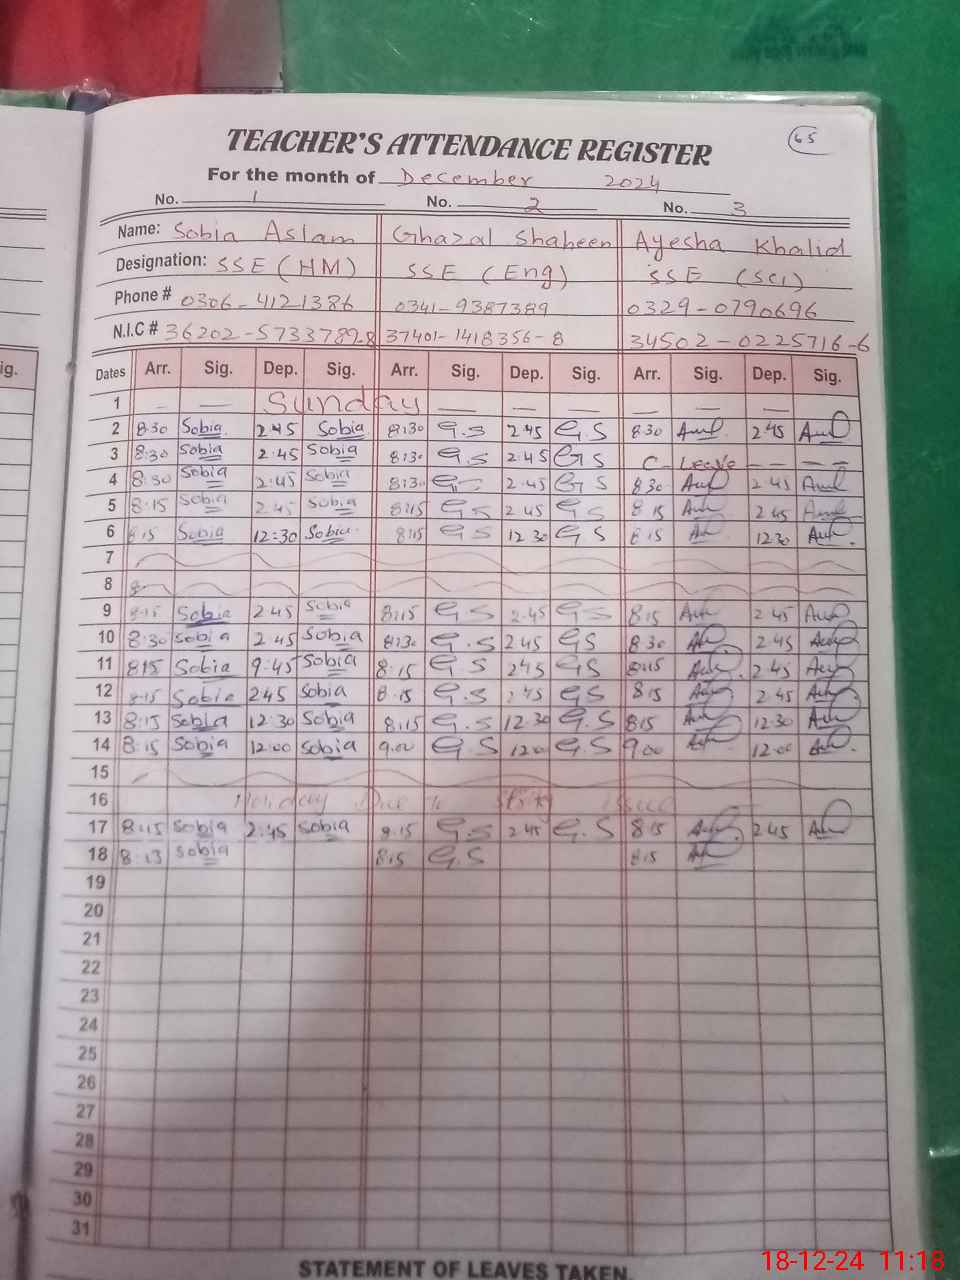 65
TEACHER'S ATTENDANCE REGISTER
For the month of December 2024
No. 1 No. 2 No. 3
Name: Sobia Aslam Ghazal Shaheen Ayesha Khalid
Designation: SSE (HM) SSE (Eng) SSE (Sci)
Phone # 0306-4121386 0341-9387389 0329-0790696
N.I.C # 36202-5733789-8 37401-1418356-8 34502-0225716-6
ig. Dates Arr. Sig. Dep. Sig. Arr. Sig. Dep. Sig. Arr. Sig. Dep. Sig.
1 — — Sunday — — — — — —
2 8:30 Sobia 2:45 Sobia 8:30 G.S 2:45 G.S 8:30 2:45
3 8:30 Sobia 2:45 Sobia 8:30 G.S 2:45 G.S C-Leave — —
4 8:30 Sobia 2:45 Sobia 8:30 G.S 2:45 G.S 8:30 2:45
5 8:15 Sobia 2:45 Sobia 8:15 G.S 2:45 G.S 8:15 2:45
6 8:15 Sobia 12:30 Sobia 8:15 G.S 12:30 G.S 8:15 12:30
7
8
9 8:15 Sobia 2:45 Sobia 8:15 G.S 2:45 G.S 8:15 2:45
10 8:30 Sobia 2:45 Sobia 8:30 G.S 2:45 G.S 8:30 2:45
11 8:15 Sobia 9:45 Sobia 8:15 G.S 2:45 G.S 8:15 2:45
12 8:15 Sobia 2:45 Sobia 8:15 G.S 2:45 G.S 8:15 2:45
13 8:15 Sobia 12:30 Sobia 8:15 G.S 12:30 G.S 8:15 12:30
14 8:15 Sobia 12:00 Sobia 9:00 G.S 1200 G.S 9:00 12:00
15
16 Holiday Due to Issue
17 8:15 Sobia 2:45 Sobia 8:15 G.S 2:45 G.S 8:15 2:45
18 8:13 Sobia 8:15 G.S 8:15
19
20
21
22
23
24
25
26
27
28
29
30
31
STATEMENT OF LEAVES TAKEN
18-12-24 11:18